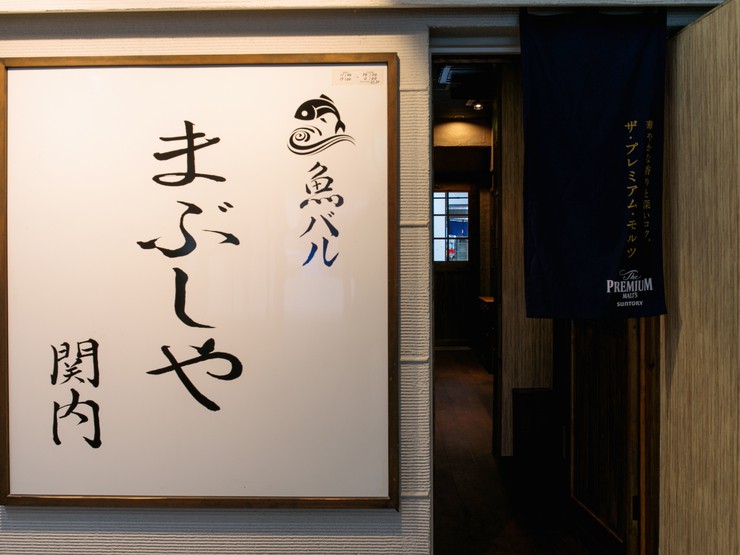 魚バル
まぶしや
関内
華やかな香りと深いコク。
ザ・プレミアム・モルツ
The
PREMIUM
MALT'S
SUNTORY